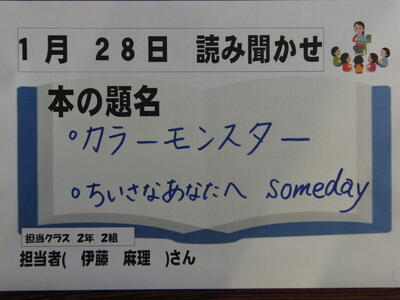 1月 28日 読み聞かせ
本の題名
○カラーモンスター
○ちいさなあなたへ someday
担当クラス 2年 2組
担当者( 伊藤 麻理 )さん